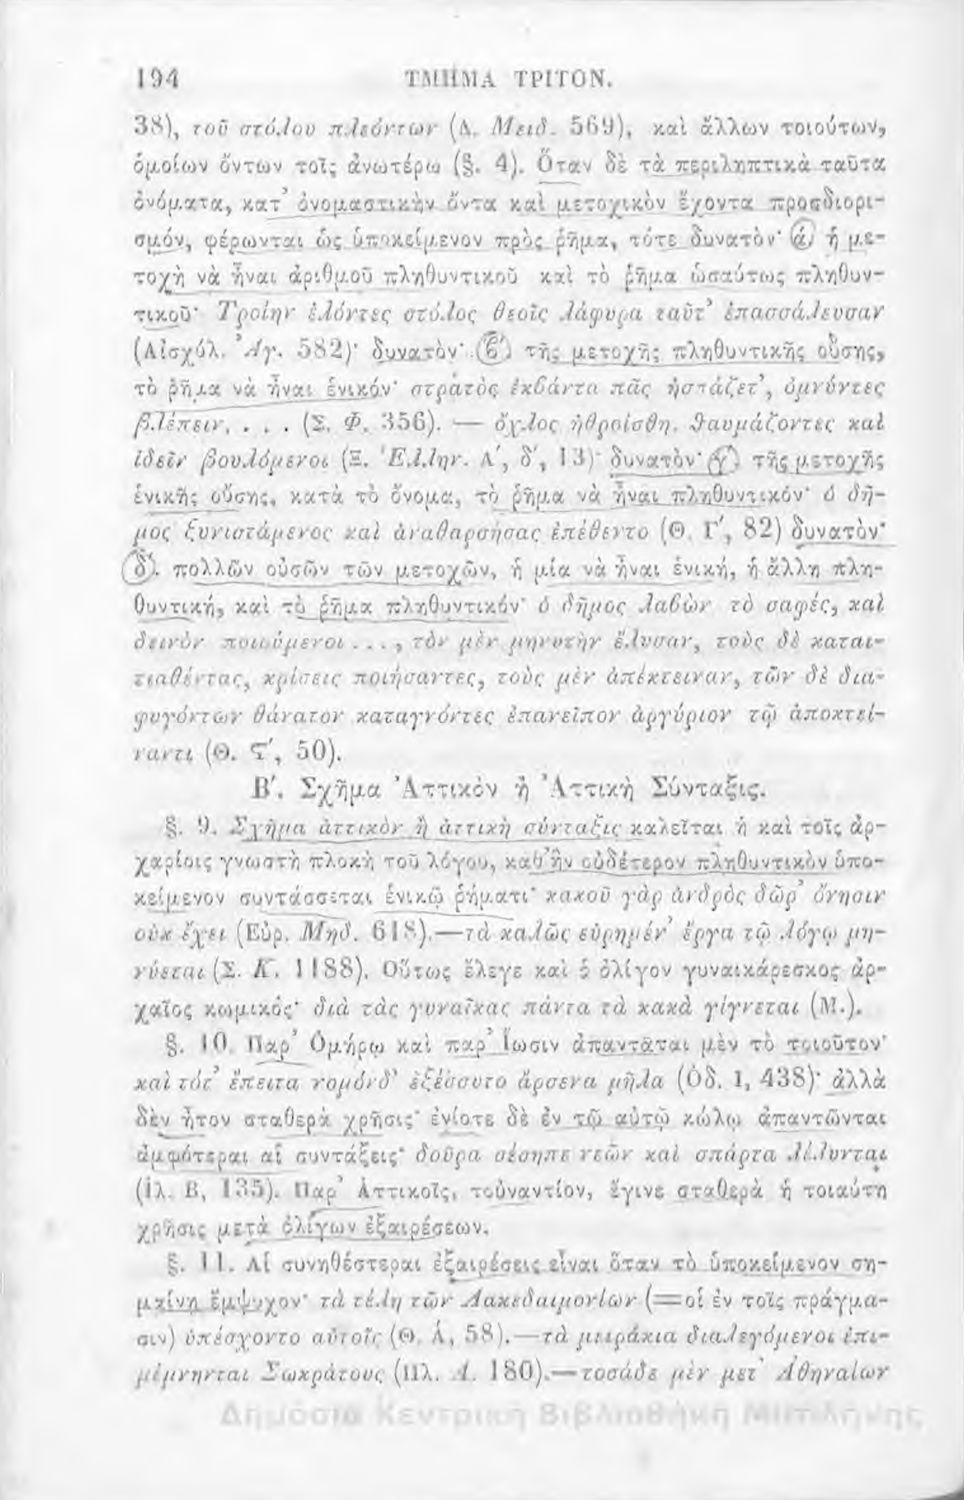 194 ΤΜΗΜΑ ΤΡΙΤΟΝ.
38), τοῦ στόλου πλεόντων (Δ. Μειδ. 569), καὶ ἄλλων τοιούτων,
ὁμοίων ὄντων τοῖς ἀνωτέρω (§. 4). Ὅταν δὲ τὰ περιληπτικὰ ταῦτα
ὀνόματα, κατ' ὀνομαστικὴν ὄντα καὶ μετοχικὸν ἔχοντα προσδιορι-
σμόν, φέρωνται ὡς ὑποκείμενον πρὸς ῥῆμα, τότε δυνατὸν· ά) ἡ με-
τοχὴ νὰ ἦναι ἀριθμοῦ πληθυντικοῦ καὶ τὸ ῥῆμα ὡσαύτως πληθυν-
τικοῦ· Τροίην ἑλόντες στόλος θεοῖς λάφυρα ταῦτ' ἐπασσάλευσαν
(Αἰσχύλ. Ἀγ. 582)· δυνατὸν· (ϐ') τῆς μετοχῆς πληθυντικῆς οὔσης,
τὸ ῥῆμα νὰ ἦναι ἑνικόν· στρατὸς ἐκβάντα πᾶς ἠσπάζετ', ὀμνύντες
βλέπειν, . . . (Σ. Φ. 356). — ὄχλος ἠθροίσθη, θαυμάζοντες καὶ
ἰδεῖν βουλόμενοι (Ξ. Ἑλλην. Α', δ', 13)· δυνατὸν· (γ') τῆς μετοχῆς
ἑνικῆς οὔσης, κατὰ τὸ ὄνομα, τὸ ῥῆμα νὰ ἦναι πληθυντικόν· ὁ δῆ-
μος ξυνιστάμενος καὶ ἀναθαρσήσας ἐπέθεντο (Θ. Γ', 82) δυνατὸν·
(δ'). πολλῶν οὐσῶν τῶν μετοχῶν, ἡ μία νὰ ἦναι ἑνική, ἡ ἄλλη πλη-
θυντική, καὶ τὸ ῥῆμα πληθυντικόν· ὁ δῆμος λαβὼν τὸ σαφές, καὶ
δεινὸν ποιούμενοι . . . , τὸν μὲν μηνυτὴν ἔλυσαν, τοὺς δὲ καται-
τιαθέντας, κρίσεις ποιήσαντες, τοὺς μὲν ἀπέκτειναν, τῶν δὲ δια-
φυγόντων θάνατον καταγνόντες ἐπανεῖπον ἀργύριον τῷ ἀποκτεί-
ναντι (Θ. Ϛ', 50).
Β'. Σχῆμα Ἀττικὸν ἢ Ἀττικὴ Σύνταξις.
§. 9. Σχῆμα ἀττικὸν ἢ ἀττικὴ σύνταξις καλεῖται ἡ καὶ τοῖς ἀρ-
χαρίοις γνωστὴ πλοκὴ τοῦ λόγου, καθ' ἣν οὐδέτερον πληθυντικὸν ὑπο-
κείμενον συντάσσεται ἑνικῷ ῥήματι· κακοῦ γὰρ ἀνδρὸς δῶρ' ὄνησιν
οὐκ ἔχει (Εὐρ. Μηδ. 618).—τὰ καλῶς εὑρημέν' ἔργα τῷ λόγῳ μη-
νύεται (Σ. Κ. 1188). Οὕτως ἔλεγε καὶ ὁ ὀλίγον γυναικάρεσκος ἀρ-
χαῖος κωμικός· διὰ τὰς γυναῖκας πάντα τὰ κακὰ γίγνεται (Μ.).
§. 10. Παρ' Ὁμήρῳ καὶ παρ' Ἴωσιν ἀπαντᾶται μὲν τὸ τοιοῦτον·
καὶ τότ' ἔπειτα νομόνδ' ἐξέσσυτο ἄρσενα μῆλα (Ὀδ. Ι, 438)· ἀλλὰ
δὲν ἦτον σταθερὰ χρῆσις· ἐνίοτε δὲ ἐν τῷ αὐτῷ κώλῳ ἀπαντῶνται
ἀμφότεραι αἱ συντάξεις· δοῦρα σέσηπε νεῶν καὶ σπάρτα λέλυνται
(Ἰλ. Β, 135). Παρ' Ἀττικοῖς, τοὐναντίον, ἔγινε σταθερὰ ἡ τοιαύτη
χρῆσις μετὰ ὀλίγων ἐξαιρέσεων.
§. 11. Αἱ συνηθέστεραι ἐξαιρέσεις εἶναι ὅταν τὸ ὑποκείμενον ση-
μαίνῃ ἔμψυχον· τὰ τέλη τῶν Λακεδαιμονίων (=οἱ ἐν τοῖς πράγμα-
σιν) ὑπέσχοντο αὐτοῖς (Θ. Ἀ, 58).—τὰ μειράκια διαλεγόμενοι ἐπι-
μέμνηνται Σωκράτους (Πλ. Λ. 180).—τοσάδε μὲν μετ' Ἀθηναίων
Δημόσια Κεντρική Βιβλιοθήκη Μυτιλήνης